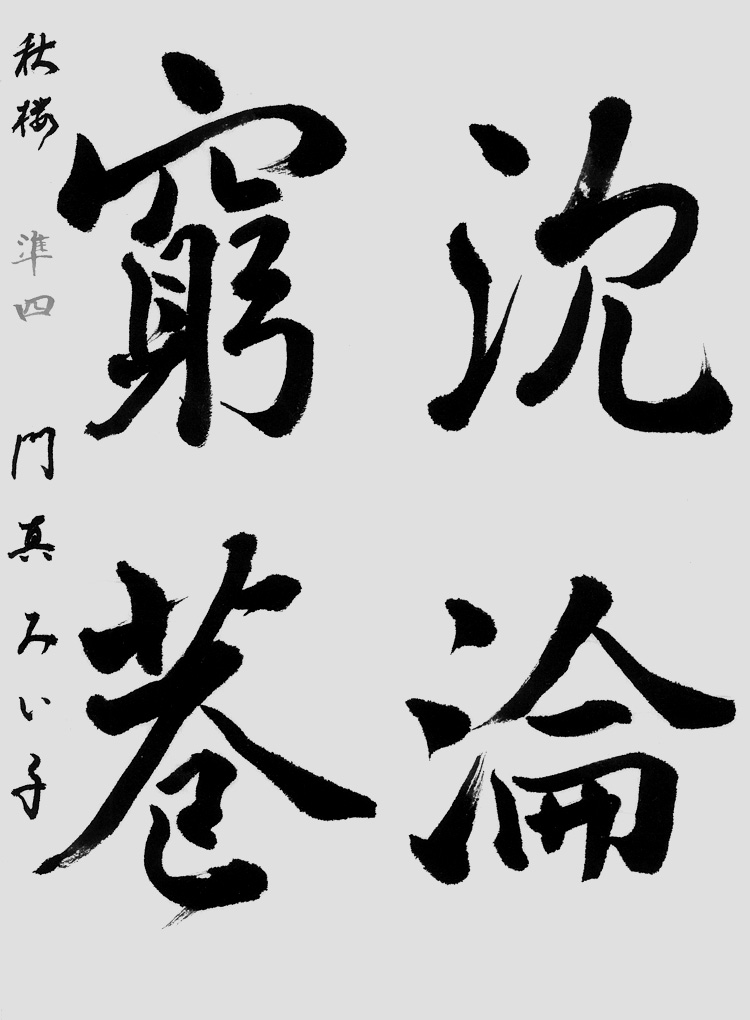 沈淪
窮巷
秋桜 準四 門真みい子